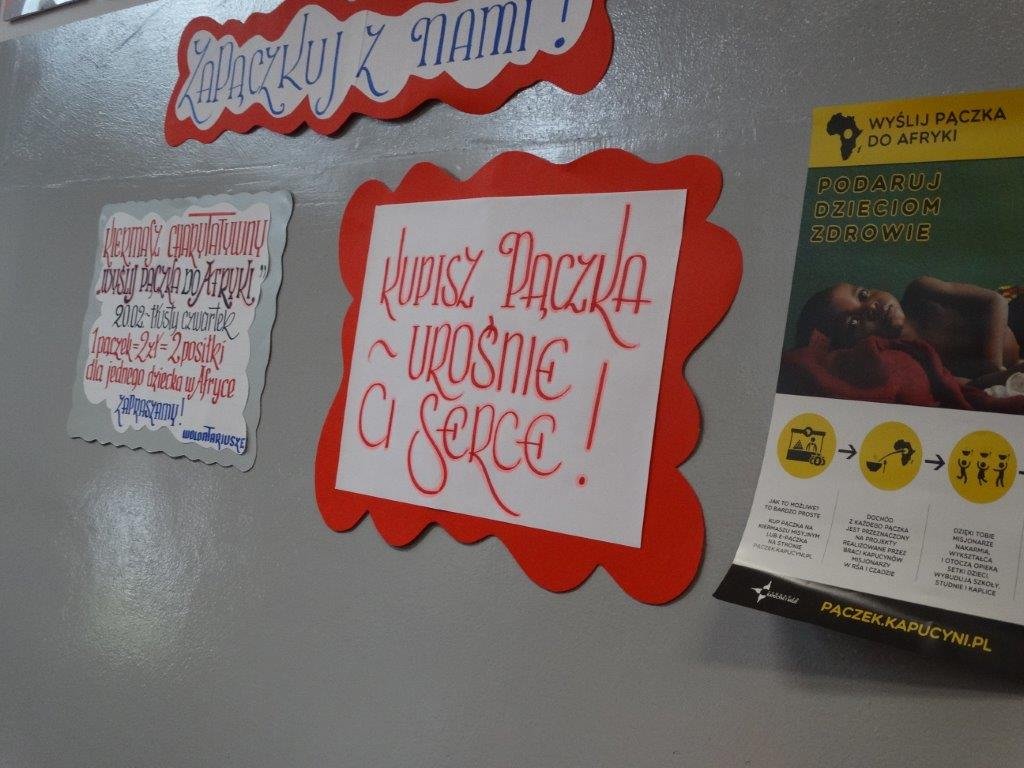 ZAPĄCZKUJ Z NAMI!
KIERMASZ CHARYTATYWNY
"WYŚLIJ PĄCZKA DO AFRYKI"
20.02 - tłusty czwartek
1 pączek = 2 zł = 2 posiłki
dla jednego dziecka w Afryce
ZAPRASZAMY!
WOLONTARIUSZE
KUPISZ PĄCZKA
~ UROŚNIE
CI SERCE!
WYŚLIJ PĄCZKA
DO AFRYKI
PODARUJ
DZIECIOM
ZDROWIE
JAK TO MOŻLIWE?
TO BARDZO PROSTE
KUP PĄCZKA NA
KIERMASZU MISYJNYM
LUB E-PĄCZKA
NA STRONIE
PĄCZEK.KAPUCYNI.PL
DOCHÓD
Z KAŻDEGO PĄCZKA
JEST PRZEZNACZONY
NA PROJEKTY
REALIZOWANE PRZEZ
BRACI KAPUCYNÓW
MISJONARZY
W RŚA I CZADZIE
DZIĘKI TOBIE
MISJONARZE
NAKARMIĄ,
WYKSZTAŁCĄ
I OTOCZĄ OPIEKĄ
SETKI DZIECI,
WYBUDUJĄ SZKOŁY,
STUDNIE I KAPLICE
PĄCZEK.KAPUCYNI.PL